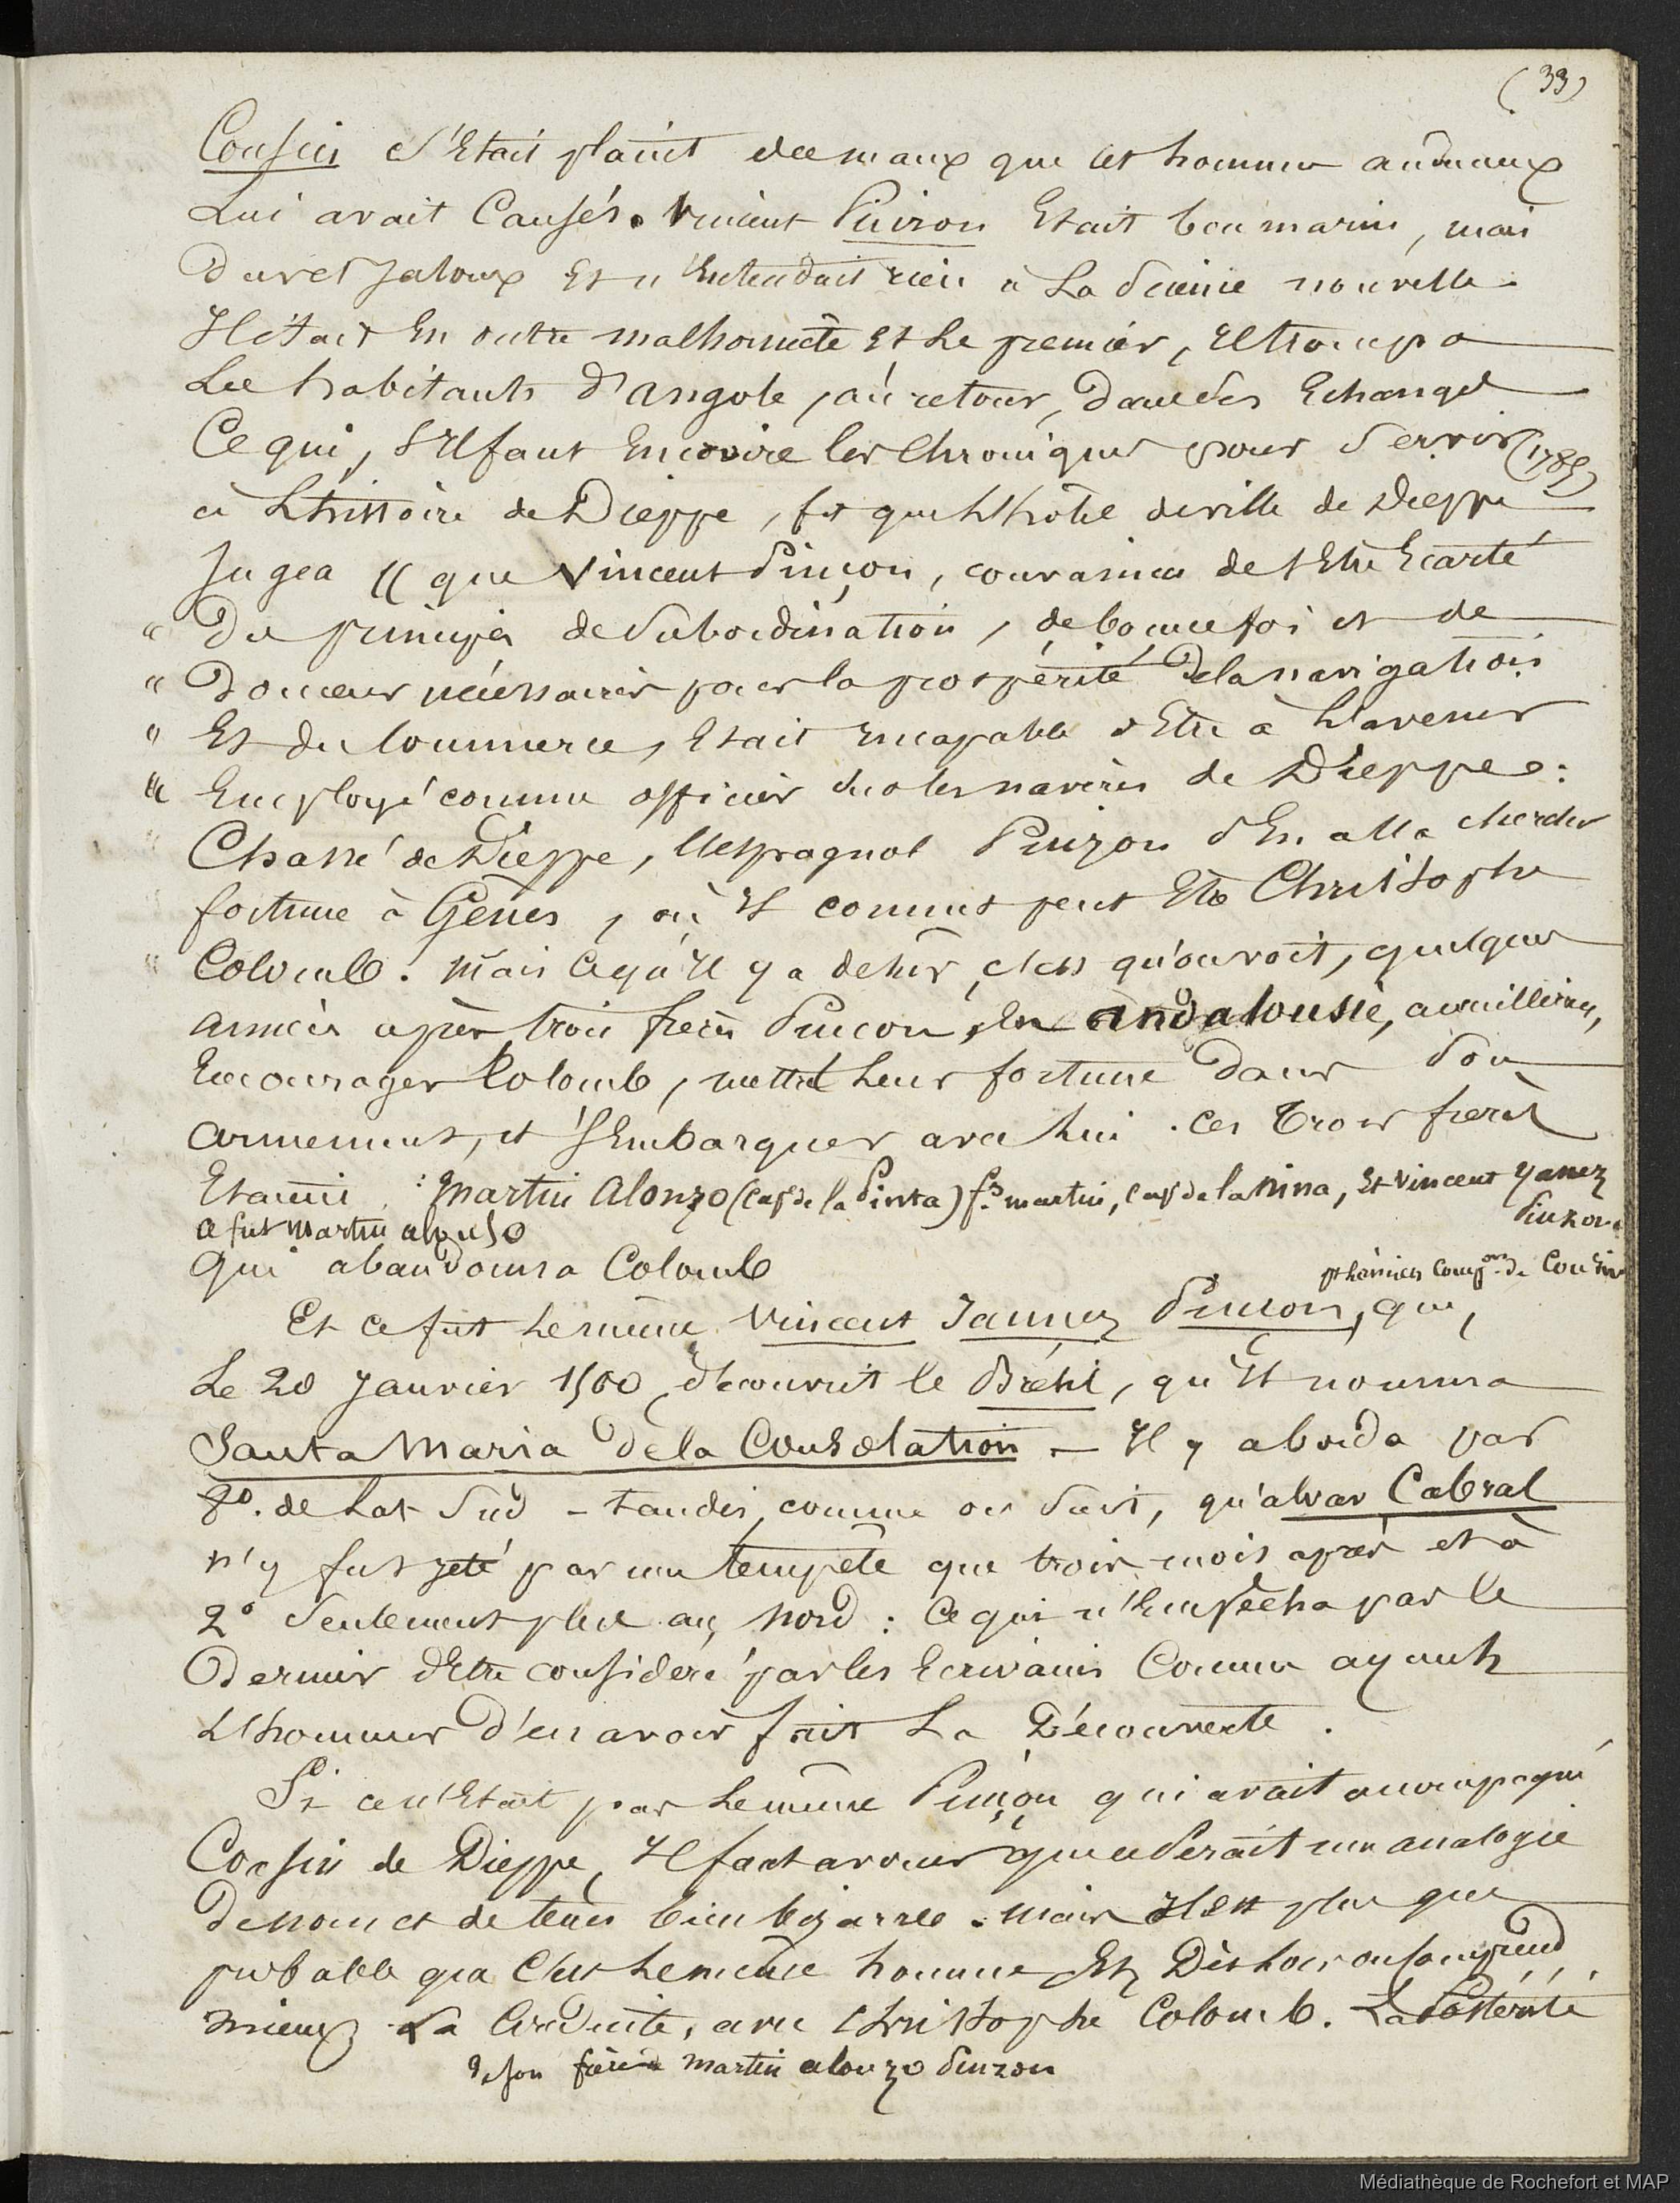 (33)
Cousin s'Etait plaint des maux que cet homme audacieux
Lui avait Causés. Vincent Pinzon Etait bon marin, mais
dur et Jaloux Et n'Entendait rien à La Science nouvelle.
Il était En outre malhonnête Et Le premier, Il trompa
Les habitants d'angole, au retour, dans des Echanges
Ce qui, s'Il faut En croire les Chroniques pour Servir (1785)
à L'histoire de Dieppe, fit que L'hôtel de ville de Dieppe
Jugea (( que Vincent Pinçon, convaincu de s'Etre Ecarté
" Du principe de Subordination, de bonne foi et de
" Douceur nécessaires pour la prospérité de la navigation
" Et du Commerce, Etait Incapable d'Etre à L'avenir
" Employé comme officier sur les navires de Dieppe :
Chassé de Dieppe, L'espagnol Pinzon s'En alla chercher
fortune à Gênes, où Il connut peut Etre Christophe
Colomb. Mais Ce qu'Il y a de sûr, c'est qu'on voit, quelques
années après, trois frères Pinçon, en andalousie, accueillir,
Encourager Colomb, mettre Leur fortune dans Son
armement, et s'Embarquer avec Lui. Ces trois frères
Etaient : Martin Alonzo (Cap. de la Pinta) fs martin, Cap de la Nina, Et Vincent Yanez
Pinzon.
Ce fut Martin alonso
Qui abandonna Colomb
premier comp.on de Cousin
Et Ce fut Le même Vincent Jannez Pinçon, qui,
Le 20 Janvier 1500, découvrit le Brésil, qu'Il nomma
Santa Maria de la Consolation - Il y aborda par
8°. de Lat Sud - tandis, comme on Sait, qu'alvar Cabral
n'y fut jeté par une tempête que trois mois après et à
2° Seulement plus au Nord : Ce qui n'Empêcha pas le
Dernier d'Etre considéré par les Ecrivains Comme ayant
L'honneur d'en avoir fait La Découverte.
Si ce n'Etait pas Le même Pinçon qui avait accompagné
Cousin de Dieppe, Il faut avouer que ce Serait une analogie
De nom et de bien bizarre. Mais Il Est plus que
probable que C'est Le même homme Et Dès Lors on comprend
mieux La Conduite, avec Christophe Colomb. La Postérité
de son frère martin alonzo Pinzon
Médiathèque de Rochefort et MAP